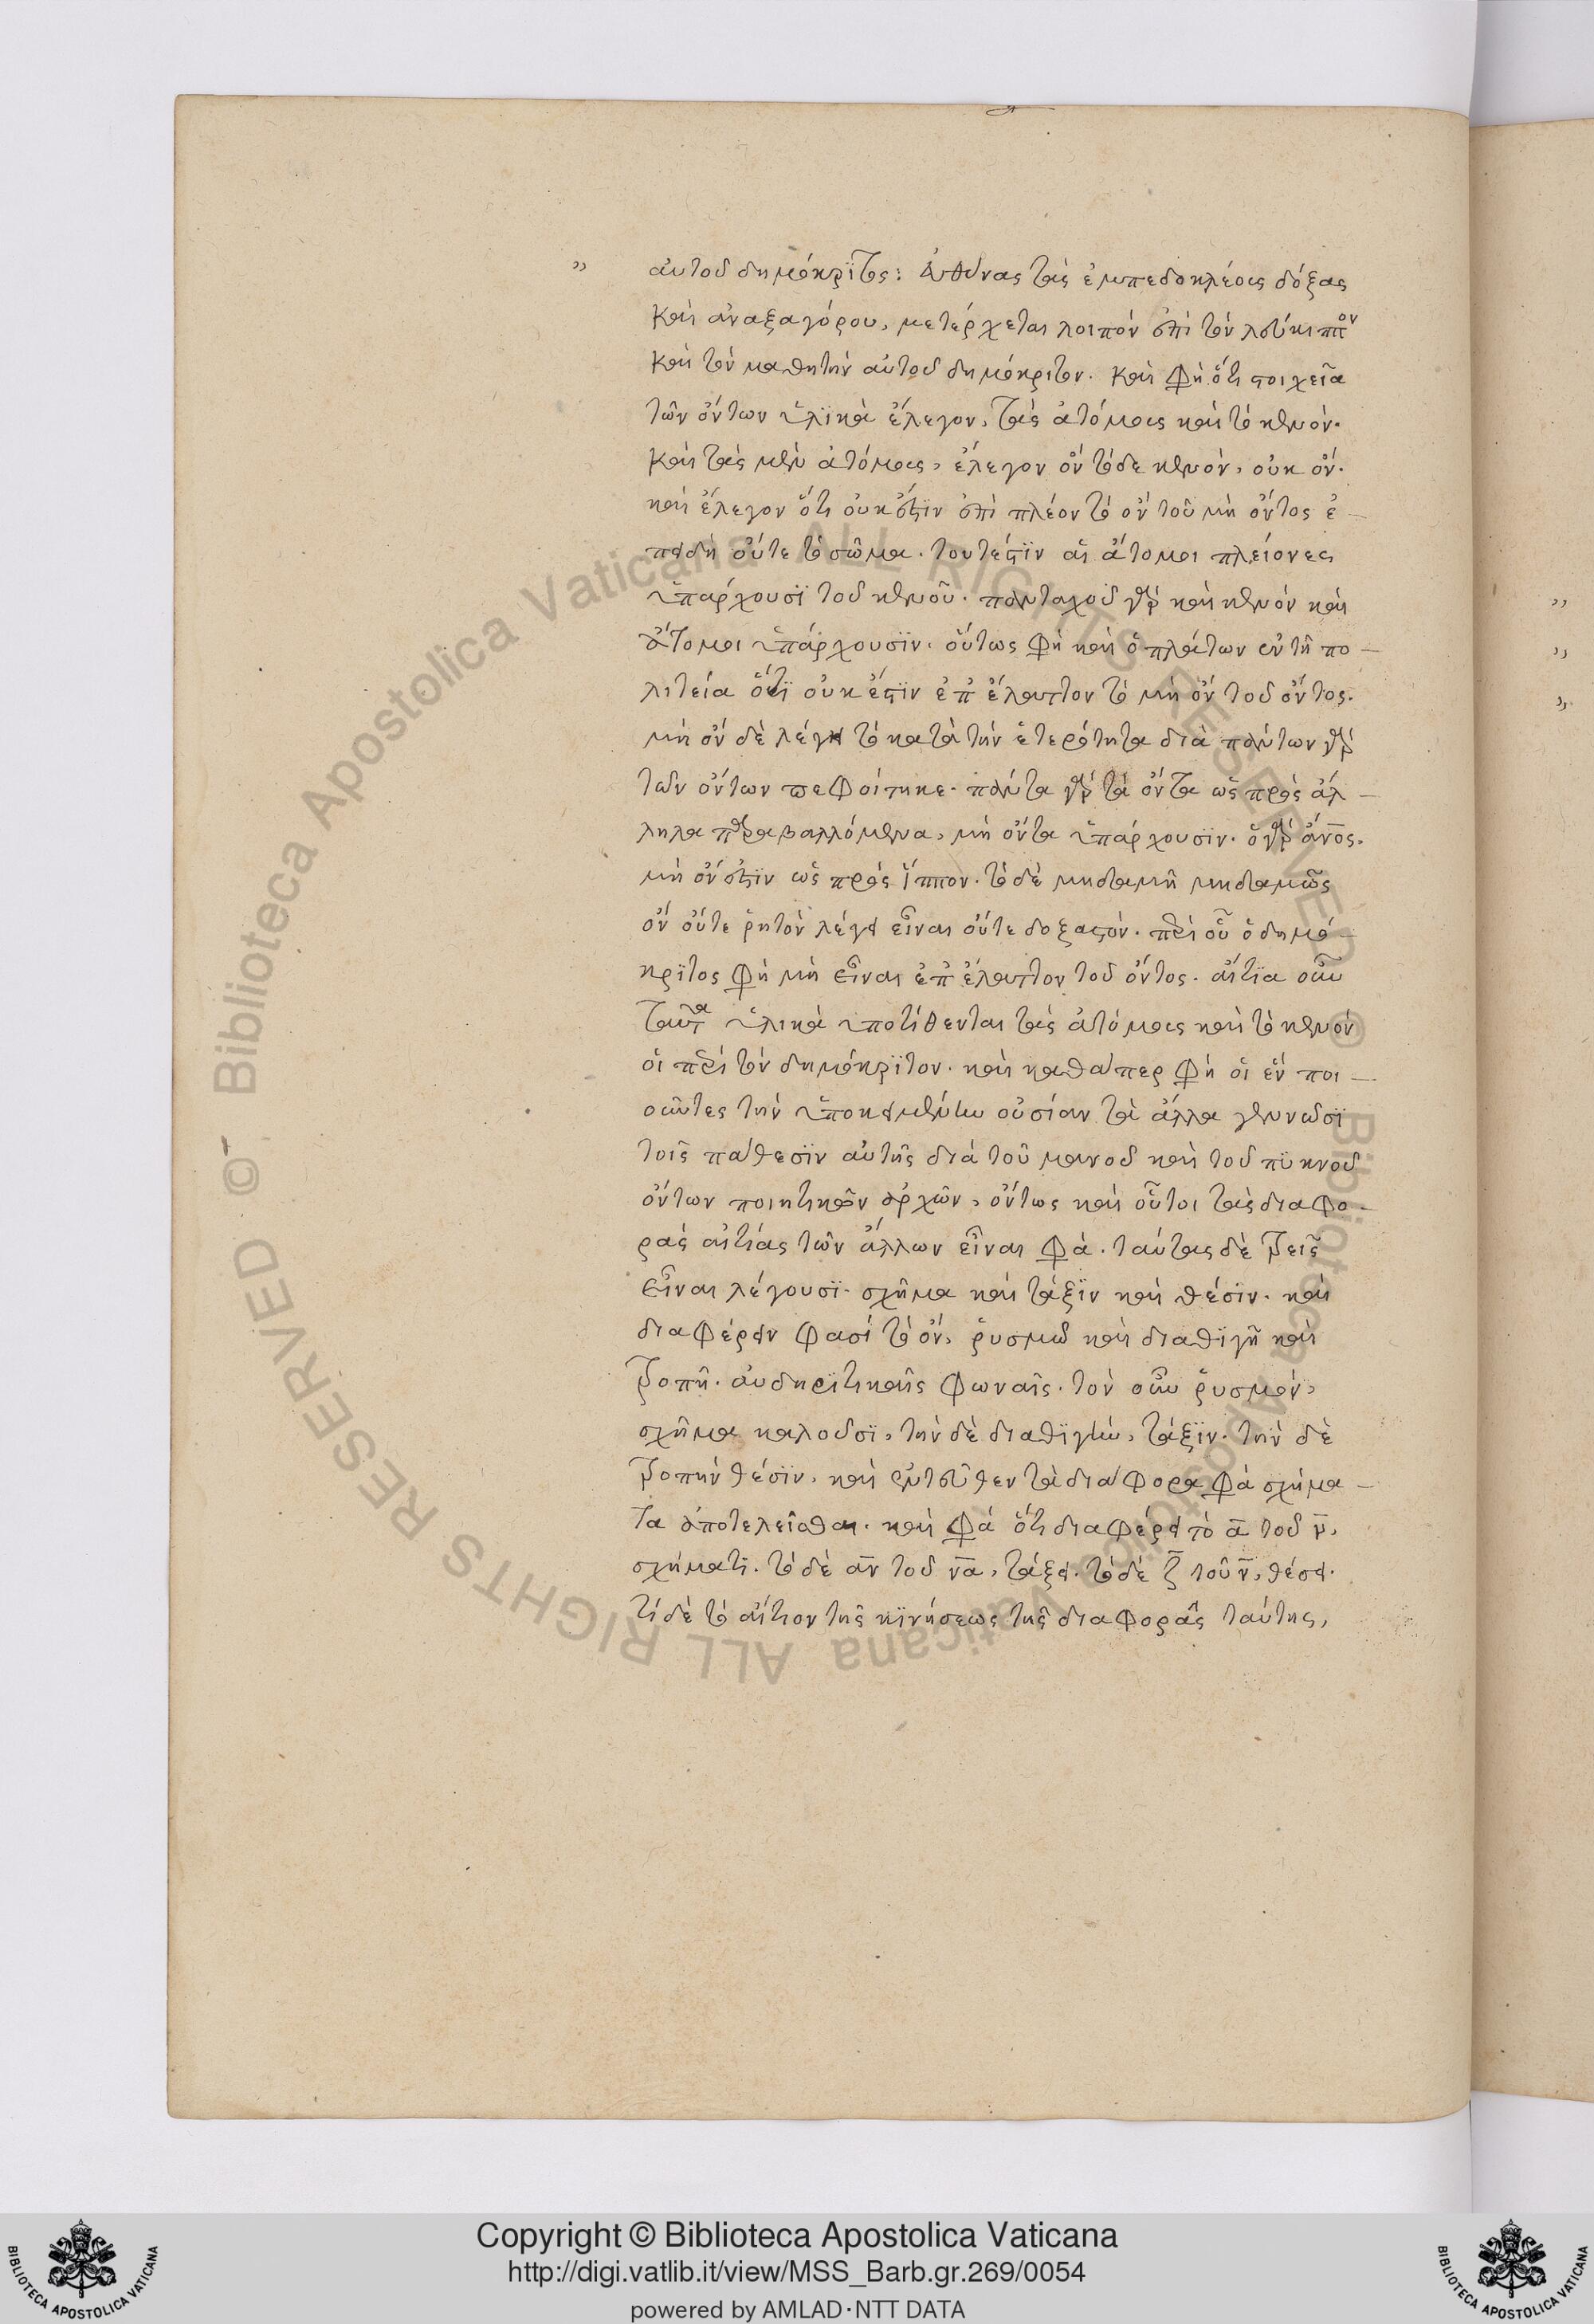 αὐτοῦ δημόκριτος: εὐθύνας τὰς ἐμπεδοκλέους δόξας
καὶ ἀναξαγόρου, μετέρχεται λοιπὸν ἐπὶ τὸν λεύκιππον
καὶ τὸν μαθητὴν αὐτοῦ δημόκριτον. καὶ φη ὅτι στοιχεῖα
τῶν ὄντων ὑλϊκὰ ἔλεγον, τὰς ἀτόμους καὶ τὸ κενόν.
καὶ τὰς μὲν ἀτόμους, ἔλεγον ὂν τὸ δὲ κενὸν, οὐκ ὄν.
καὶ ἔλεγον ὅτι οὐκ ἔστϊν ἐπὶ πλέον τὸ ὂν τοῦ μὴ ὄντος ἐ
πειδὴ οὔτε τὸ σῶμα. τουτέστϊν αἱ ἄτομοι πλείονες
ὑπάρχουσϊ τοῦ κενοῦ. πανταχοῦ γὰρ καὶ κενὸν καὶ
ἄτομοι ὑπάρχουσϊν. οὕτως φη καὶ ὁ πλάτων ἐν τῇ πο
λιτεία ὅτϊ οὐκ ἔστϊν ἐπ ἔλαττον τὸ μὴ ὂν τοῦ ὄντος.
μὴ ὂν δὲ λέγει τὸ κατὰ τὴν ἑτερότητα διὰ πάντων γὰρ
τῶν ὄντων πεφοίτηκε. πάντα γὰρ τὰ ὄντα ὡς πρὸς ἄλ
ληλα παραβαλλόμενα, μὴ ὄντα ὑπάρχουσϊν. ὁ γὰρ ἄνος.
μὴ ὄν ἐστϊν ὡς πρὸς ἵππον. τὸ δὲ μηδαμῆ μηδαμῶς
ὂν οὔτε ῥητὸν λέγει εἶναι οὔτε δοξαστόν. περὶ οὗ ὁ δημό
κρϊτος φη μὴ εἶναι ἐπ ἔλαττον τοῦ ὄντος. αἴτϊα οὖν
ταῦτα ὑλικὰ ὑποτίθενται τὰς ἀτόμους καὶ τὸ κενὸν
οἱ περὶ τὸν δημόκρϊτον. καὶ καθάπερ φη οἱ ἓν ποι
οῦντες τὴν ὑποκειμένην οὐσίαν τὰ ἄλλα γεννῶσϊ
τοῖς πάθεσϊν αὐτῆς διὰ τοῦ μανοῦ καὶ τοῦ πϋκνοῦ
ὄντων ποιητικῶν ἀρχῶν, οὕτως καὶ οὗτοι τὰς διαφο
ρὰς αἰτίας τῶν ἄλλων εἶναι φα. ταύτας δὲ τρεῖς
εἶναι λέγουσϊ. σχῆμα καὶ τάξϊν καὶ θέσϊν. καὶ
διαφέρειν φασὶ τὸ ὂν, ῥυσμῶ καὶ διαθϊγῆ καὶ
τροπῆ. αὐδηρϊτικαῖς φωναῖς. τὸν οὖν ῥυσμὸν,
σχῆμα καλοῦσϊ, τὴν δὲ διαθϊγὴν, τάξϊν. τὴν δὲ
τροπὴν θέσϊν. καὶ ἐντεῦθεν τὰ διάφορα φα σχήμα
τα ἀποτελεῖσθαι. καὶ φα ὅτι διαφέρει τὸ α τοῦ ν,
σχήματι. τὸ δὲ αν τοῦ να, τάξει. τὸ δὲ ζ τοῦ ν, θέσει.
τί δὲ τὸ αἴτιον τῆς κϊνήσεως τῆς διαφορᾶς ταύτης,
Copyright © Biblioteca Apostolica Vaticana
http://digi.vatlib.it/view/MSS_Barb.gr.269/0054
powered by AMLAD·NTT DATA
BIBLIOTECA APOSTOLICA VATICANA
BIBLIOTECA APOSTOLICA VATICANA
© Biblioteca Apostolica Vaticana ALL RIGHTS RESERVED
© Biblioteca Apostolica Vaticana ALL RIGHTS RESERVED